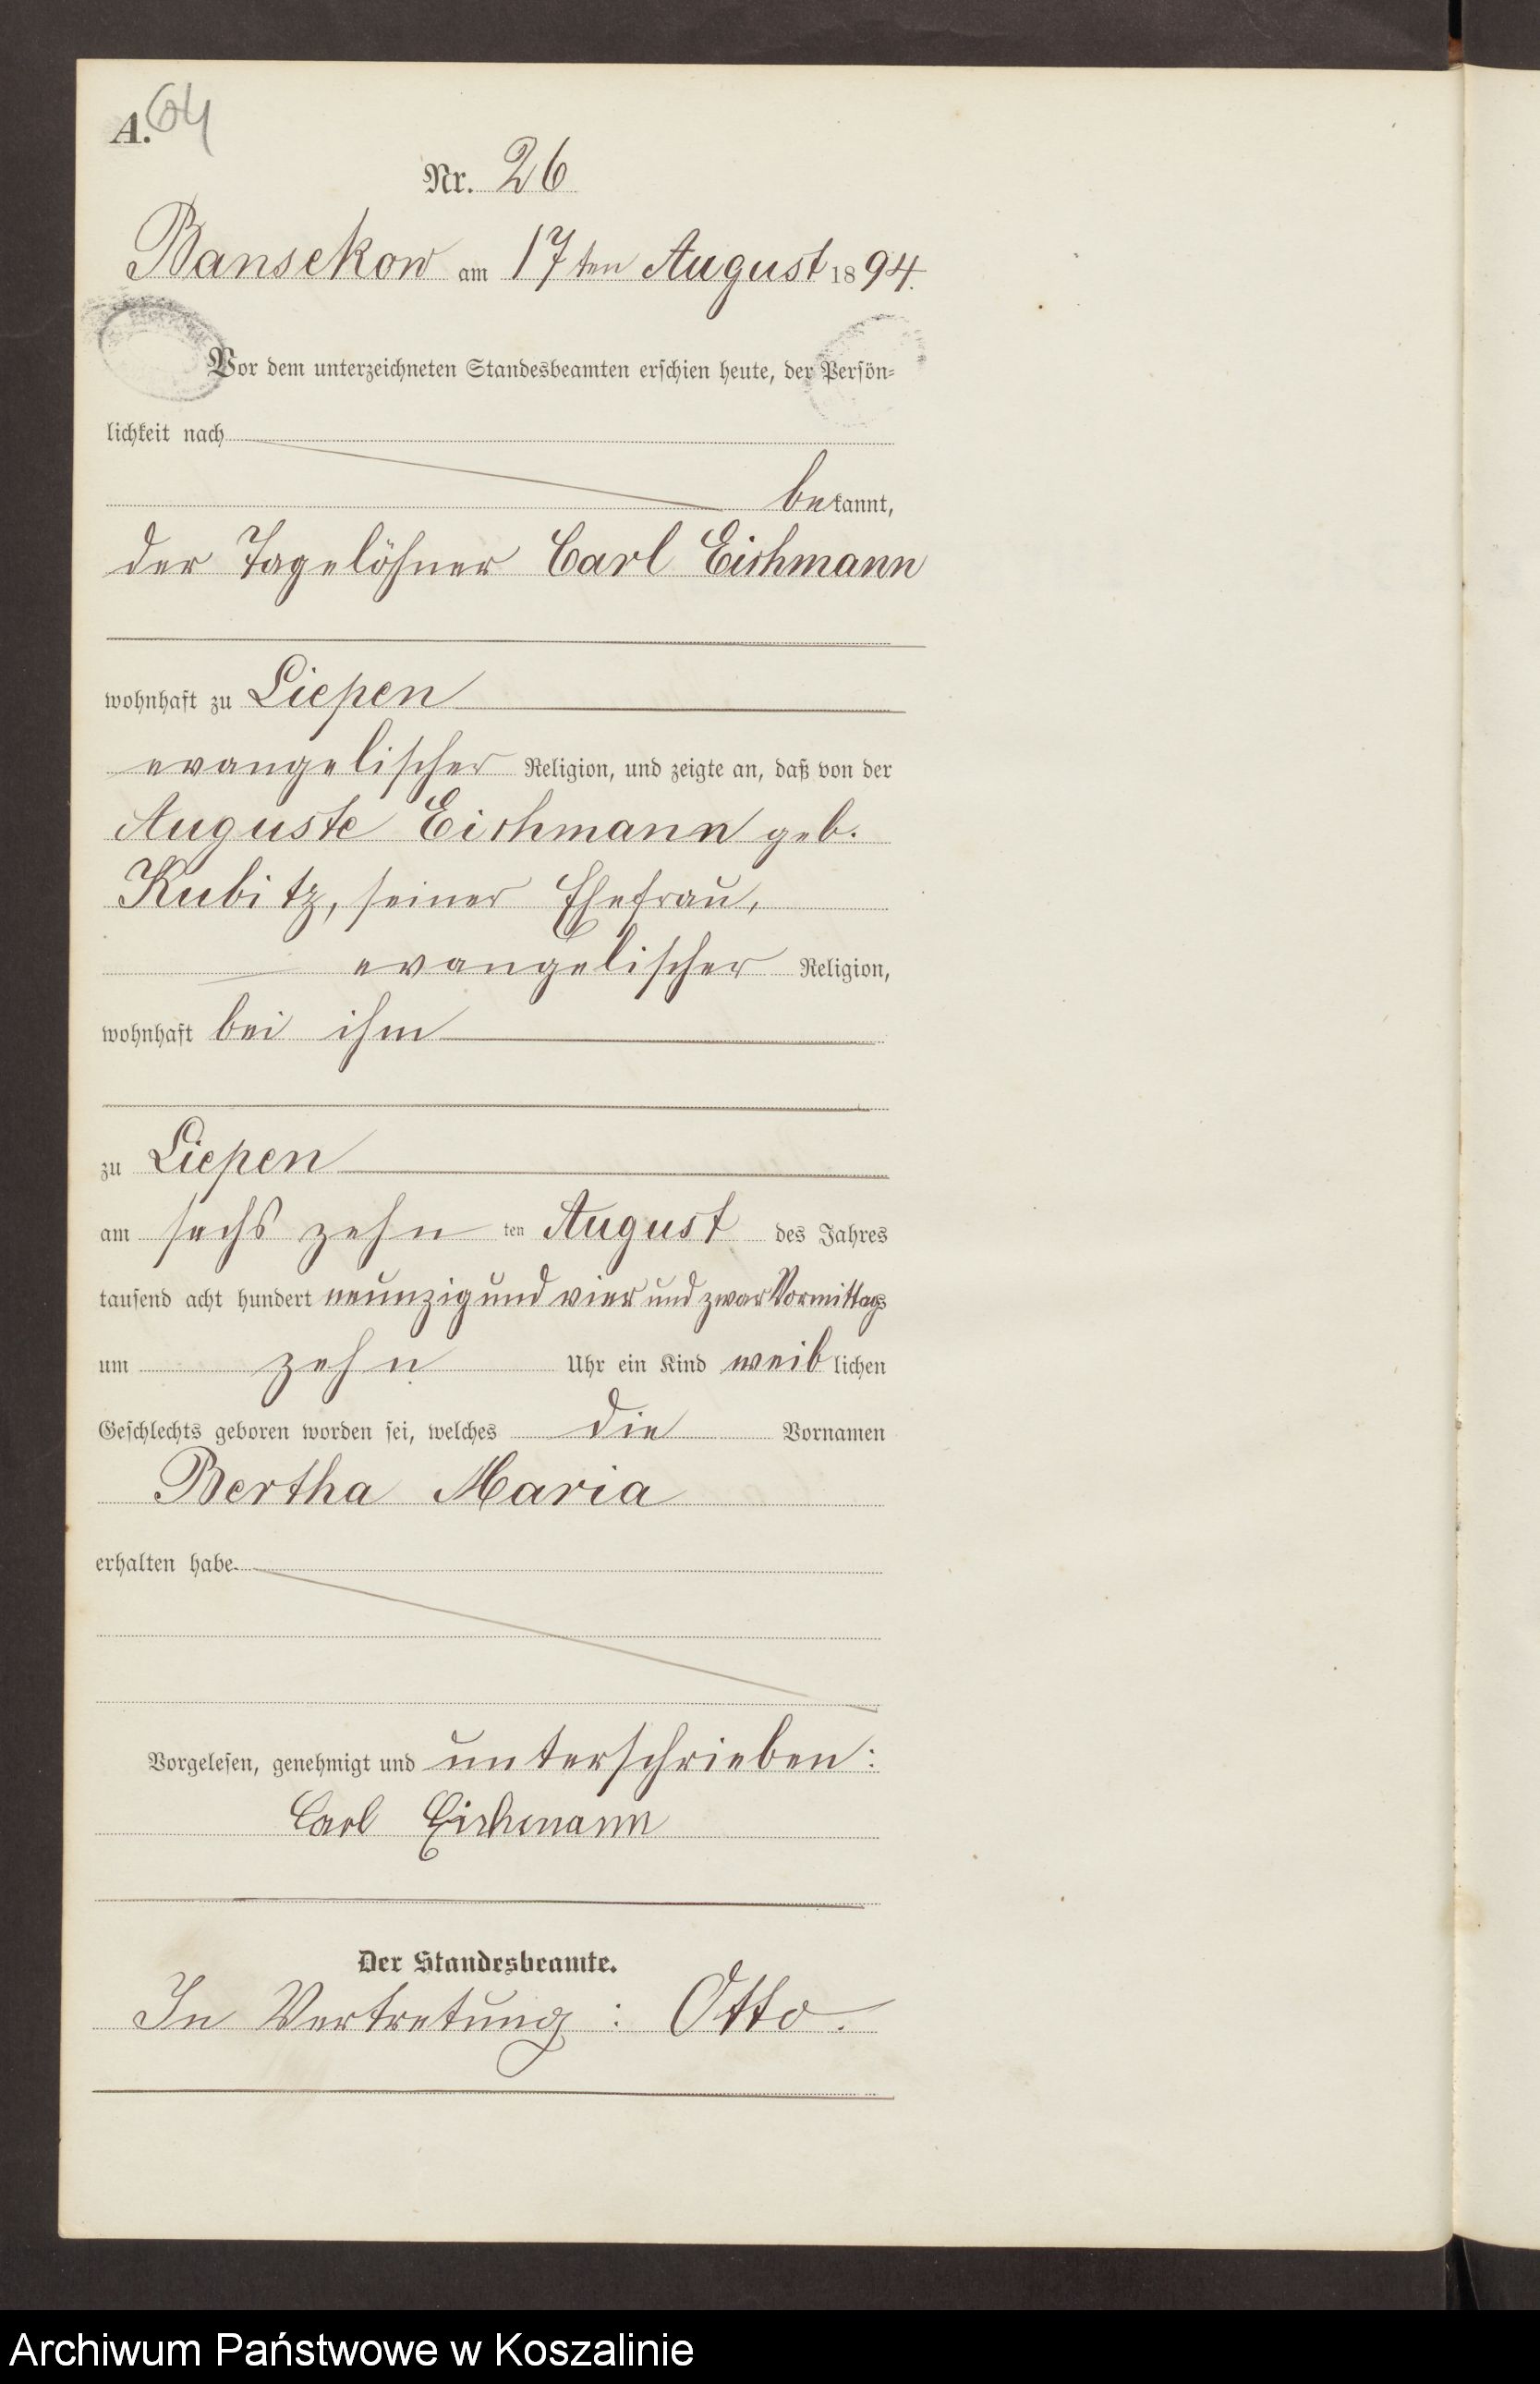 A. 64
Nr. 26
Bansekow am 17ten August 1894.
Vor dem unterzeichneten Standesbeamten erschien heute, der Persön=
lichkeit nach
bekannt,
der Tagelöhner Carl Eichmann
wohnhaft zu Liepen
evangelischer Religion, und zeigte an, daß von der
Auguste Eichmann geb.
Kubitz, seiner Ehefrau,
evangelischer Religion,
wohnhaft bei ihm
zu Liepen
am sechszehn ten August des Jahres
tausend acht hundert neunzig und vier und zwar Vormittags
um zehn Uhr ein Kind weiblichen
Geschlechts geboren worden sei, welches die Vornamen
Bertha Maria
erhalten habe.
Vorgelesen, genehmigt und unterschrieben:
Carl Eichmann
Der Standesbeamte.
In Vertretung: Otto.
Archiwum Państwowe w Koszalinie